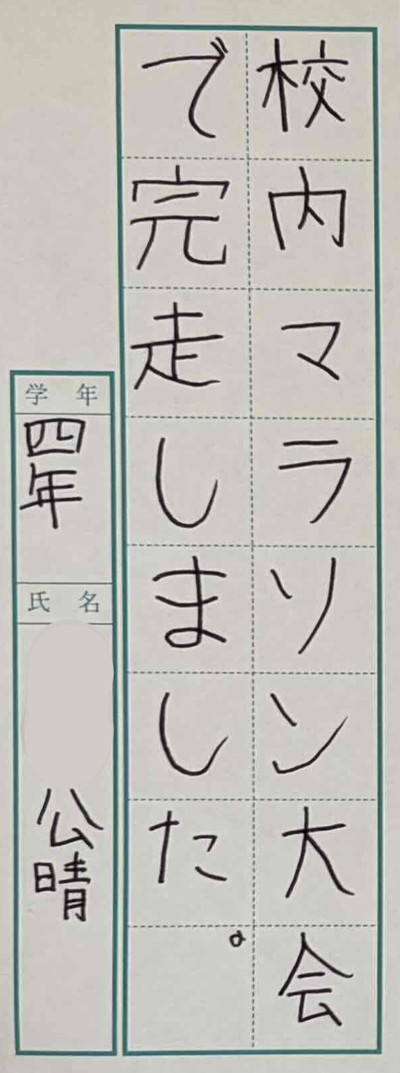 校内マラソン大会
で完走しました。
学年
四年
氏名
公晴